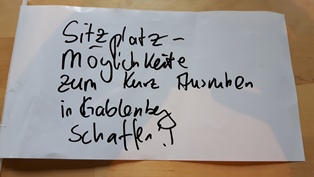 Sitzplatz-
Möglichkeite
zum Kurz Ausruhen
in Gablenberg
Schaffen!